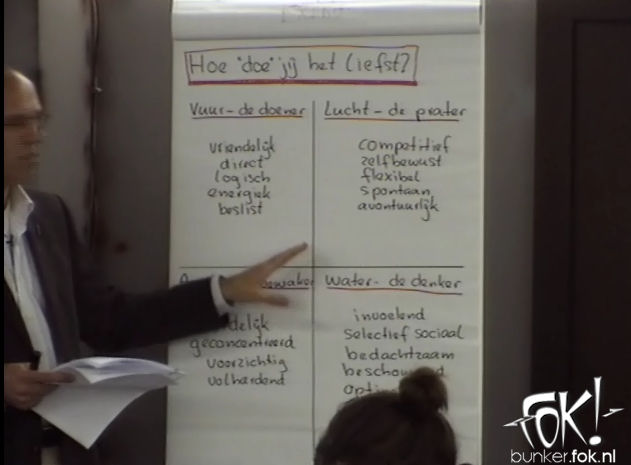 Hoe "doe" jij het liefst?
Vuur - de doener
vriendelijk
direct
logisch
energiek
beslist
Lucht - de prater
competitief
zelfbewust
flexibel
spontaan
avontuurlijk
geconcentreerd
voorzichtig
volhardend
Water - de denker
invoelend
selectief sociaal
bedachtzaam
FOK!
bunker.fok.nl